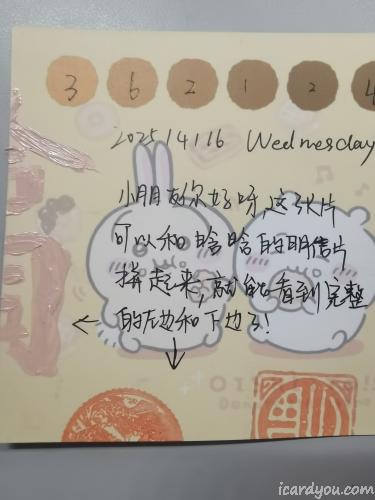 3 6 2 1 2 4
2025/4/16 Wednesday
小朋友你好呀,这张片
可以和啥啥的明信片
拼起来,就能看到完整
的左边和下边了!
icardyou.com